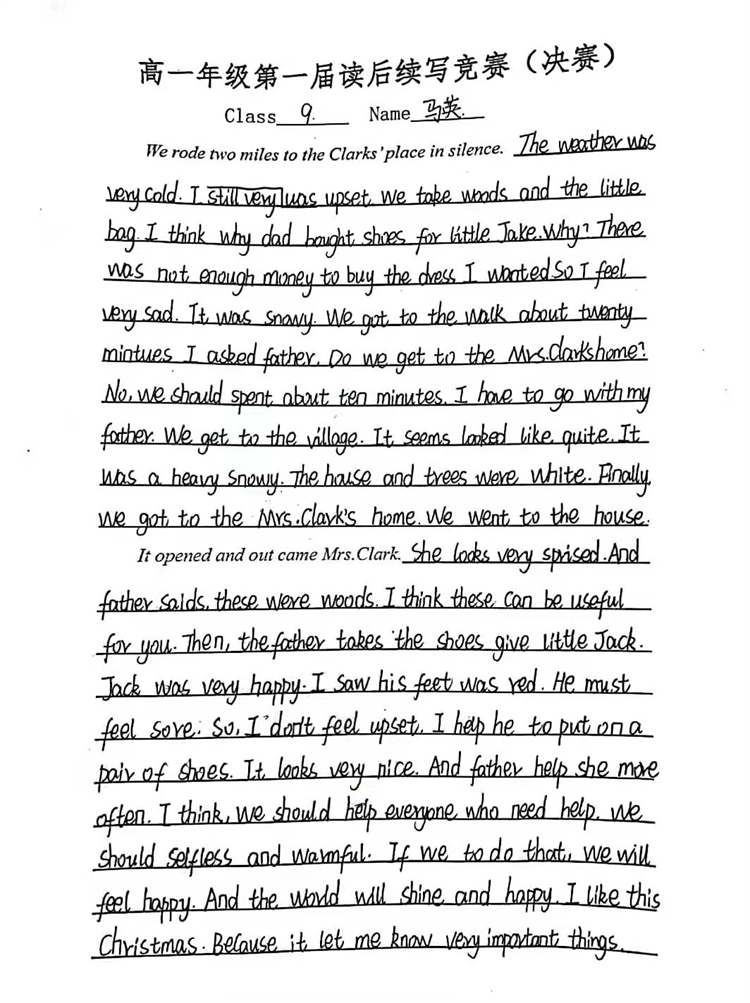 高一年级第一届读后续写竞赛（决赛）
Class 9. Name 马英.
We rode two miles to the Clarks' place in silence. The weather was
very cold. I still very was upset. We take woods and the little
bag. I think why dad bought shoes for little Jake. Why? There
was not enough money to buy the dress I wanted So I feel
very sad. It was snowy. We got to the walk about twenty
mintues. I asked father. Do we get to the Mrs.Clark's home?
No, we should spent about ten minutes. I have to go with my
father. We get to the village. It seems looked like quite. It
was a heavy snowy. The house and trees were white. Finally,
we got to the Mrs.Clark's home. We went to the house.
It opened and out came Mrs.Clark. She looks very sprised. And
father saids, these were woods. I think these can be useful
for you. Then, the father takes the shoes give little Jack.
Jack was very happy. I saw his feet was red. He must
feel sore. So, I don't feel upset. I help he to put on a
pair of shoes. It looks very nice. And father help she more
often. I think, we should help everyone who need help. We
should selfless and warmful. If we to do that, we will
feel happy. And the world will shine and happy. I like this
Christmas. Because it let me know very important things.